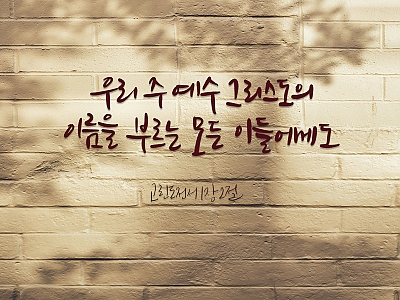 우리 주 예수 그리스도의
이름을 부르는 모든 이들에게도
고린도전서 1장 2절